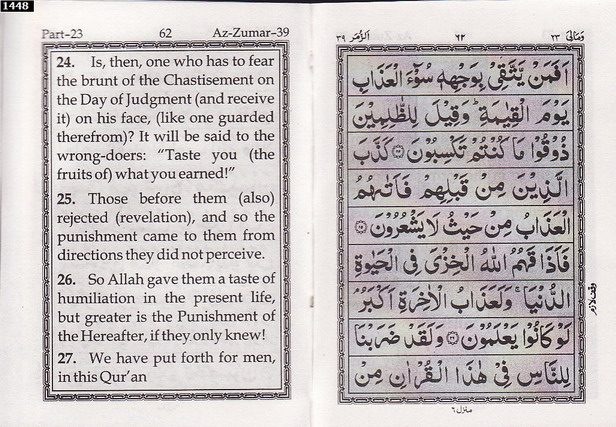 1448
Part-23 62 Az-Zumar-39
24. Is, then, one who has to fear
the brunt of the Chastisement on
the Day of Judgment (and receive
it) on his face, (like one guarded
therefrom)? It will be said to the
wrong-doers: “Taste you (the
fruits of) what you earned!”
25. Those before them (also)
rejected (revelation), and so the
punishment came to them from
directions they did not perceive.
26. So Allah gave them a taste of
humiliation in the present life,
but greater is the Punishment of
the Hereafter, if they only knew!
27. We have put forth for men,
in this Qur’an
وَمَالِیَ ٢٣ ٦٢ اَلزُّمَر ٣٩
اَفَمَنْ یَّتَّقِیْ بِوَجْهِهٖ سُوْٓءَ الْعَذَابِ
یَوْمَ الْقِیٰمَةِ ؕ وَقِیْلَ لِلظّٰلِمِیْنَ
ذُوْقُوْا مَا كُنْتُمْ تَكْسِبُوْنَ ۝٢٤ كَذَّبَ
الَّذِیْنَ مِنْ قَبْلِهِمْ فَاَتٰىهُمُ
الْعَذَابُ مِنْ حَیْثُ لَا یَشْعُرُوْنَ ۝٢٥
فَاَذَاقَهُمُ اللّٰهُ الْخِزْیَ فِی الْحَیٰوةِ
الدُّنْیَا ۚ وَلَعَذَابُ الْاٰخِرَةِ اَكْبَرُ ۘ
لَوْ كَانُوْا یَعْلَمُوْنَ ۝٢٦ وَلَقَدْ ضَرَبْنَا
لِلنَّاسِ فِیْ هٰذَا الْقُرْاٰنِ مِنْ
وقف لازم
منزل ٦